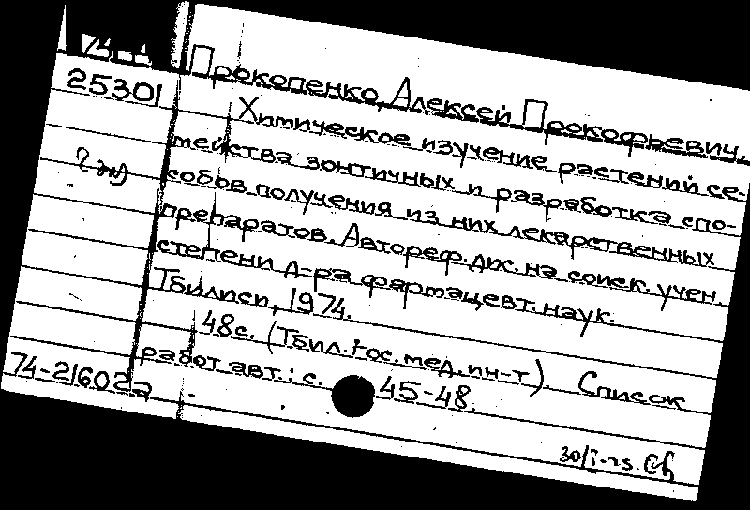 25301
Прокопенко, Алексей Прокофьевич.
Химическое изучение растений се-
мейства зонтичных и разработка спо-
собов получения из них лекарственных
препаратов. Автореф. дис. на соиск. учен.
степени д-ра фармацевт. наук.
Тбилиси, 1974.
48с. (Тбил. гос. мед. ин-т). Список
работ авт.: с. 45-48.
74-21602а